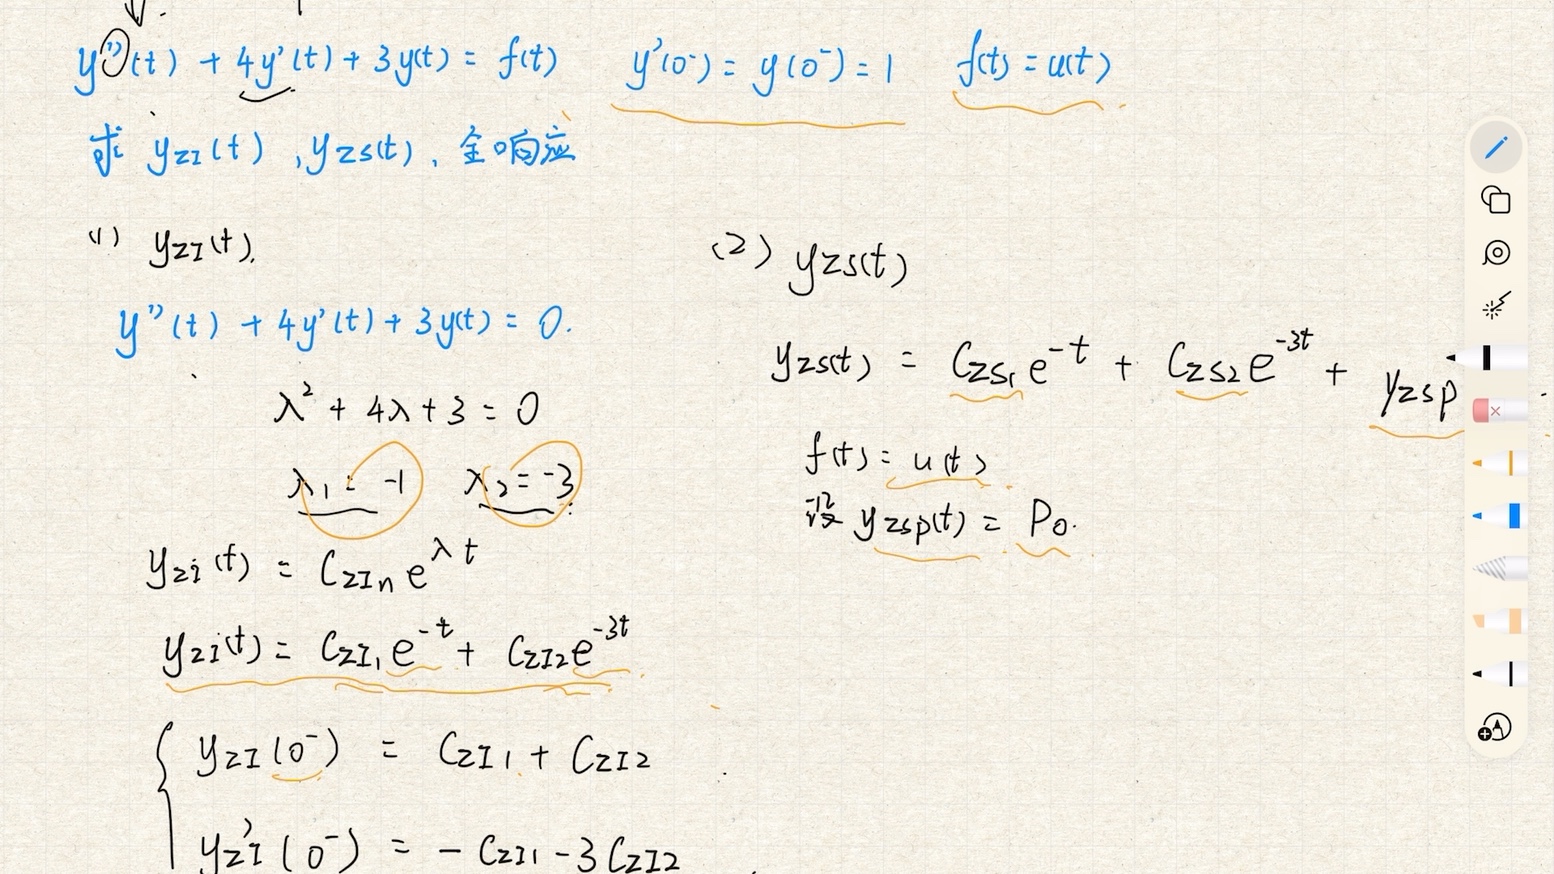 y''(t) + 4y'(t) + 3y(t) = f(t)  y'(0⁻) = y(0⁻) = 1  f(t) = u(t)
求 yzI(t), yzs(t), 全响应
(1) yzI(t).
y''(t) + 4y'(t) + 3y(t) = 0.
λ² + 4λ + 3 = 0
λ₁ = -1  λ₂ = -3
yzi(t) = CzIn e^λt
yzi(t) = CzI₁ e^-t + CzI2 e^-3t
yzI(0⁻) = CzI1 + CzI2
yzI'(0⁻) = -CzI1 - 3CzI2
(2) yzs(t)
yzs(t) = Czs₁ e^-t + Czs2 e^-3t + yzsp
f(t) = u(t)
设 yzsp(t) = P₀.